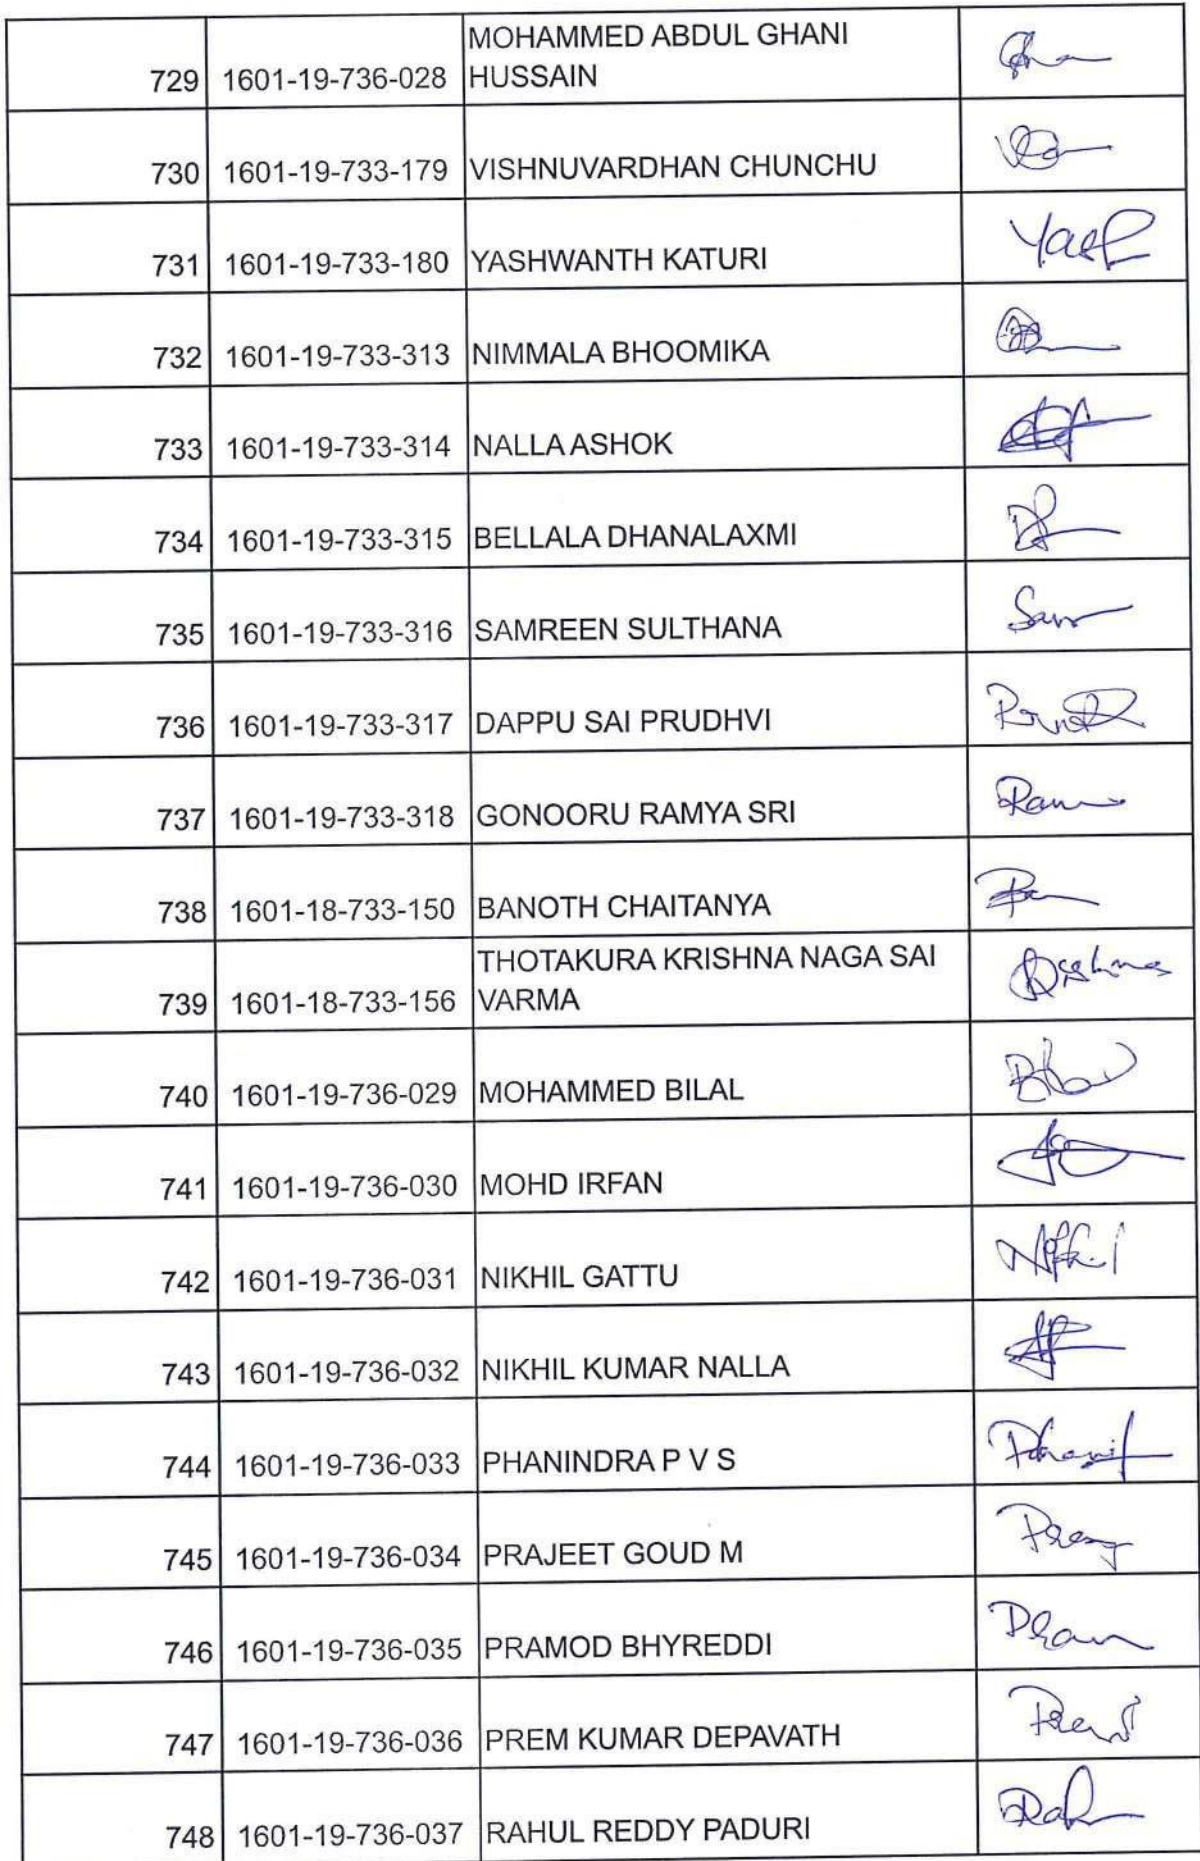 729 1601-19-736-028 MOHAMMED ABDUL GHANI
HUSSAIN
730 1601-19-733-179 VISHNUVARDHAN CHUNCHU
731 1601-19-733-180 YASHWANTH KATURI Yash
732 1601-19-733-313 NIMMALA BHOOMIKA
733 1601-19-733-314 NALLA ASHOK
734 1601-19-733-315 BELLALA DHANALAXMI
735 1601-19-733-316 SAMREEN SULTHANA
736 1601-19-733-317 DAPPU SAI PRUDHVI
737 1601-19-733-318 GONOORU RAMYA SRI
738 1601-18-733-150 BANOTH CHAITANYA
739 1601-18-733-156 THOTAKURA KRISHNA NAGA SAI
VARMA
740 1601-19-736-029 MOHAMMED BILAL
741 1601-19-736-030 MOHD IRFAN
742 1601-19-736-031 NIKHIL GATTU
743 1601-19-736-032 NIKHIL KUMAR NALLA
744 1601-19-736-033 PHANINDRA P V S
745 1601-19-736-034 PRAJEET GOUD M
746 1601-19-736-035 PRAMOD BHYREDDI
747 1601-19-736-036 PREM KUMAR DEPAVATH
748 1601-19-736-037 RAHUL REDDY PADURI